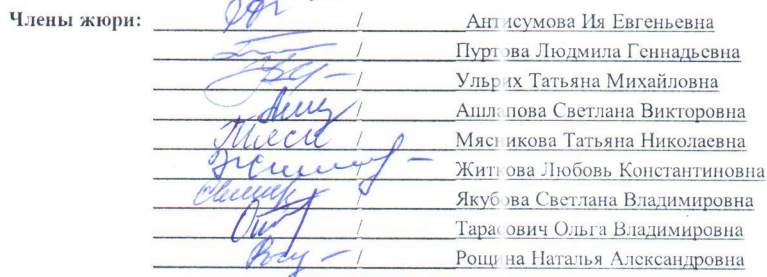 Члены жюри: / Антисумова Ия Евгеньевна
/ Пуртова Людмила Геннадьевна
/ Ульрих Татьяна Михайловна
/ Ашлапова Светлана Викторовна
/ Мясникова Татьяна Николаевна
/ Житкова Любовь Константиновна
/ Якубова Светлана Владимировна
/ Тарасович Ольга Владимировна
/ Рощина Наталья Александровна